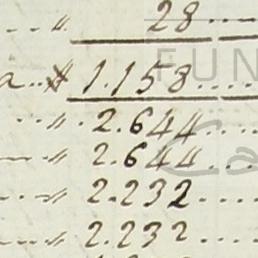 ... " 28 ....
a .. # 1.158 ....
... " . 2.644 ....
— " 2.644 ....
... " 2.232 ....
... " 2.232 ....
FUN
Ca